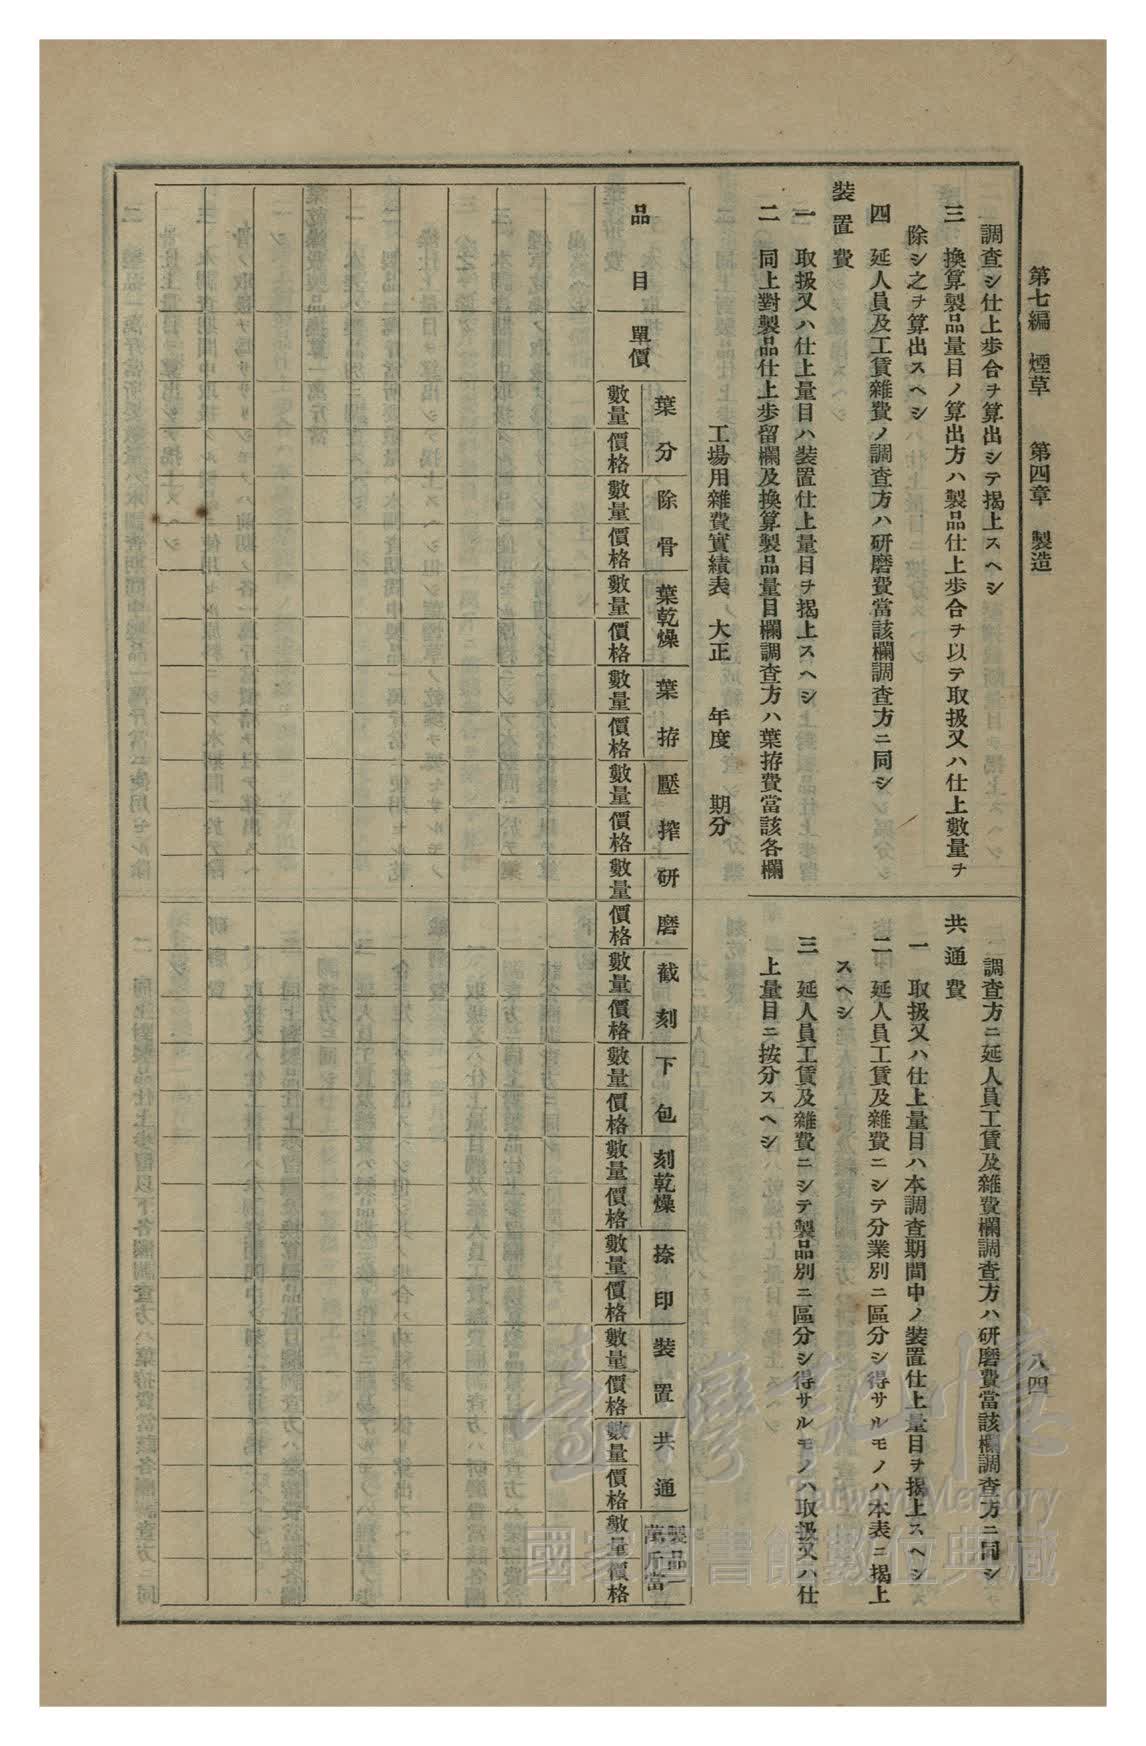 第七編　煙草　　第四章　製造
八四
調查シ仕上步合ヲ算出シテ揭上スヘシ
三　換算製品量目ノ算出方ハ製品仕上步合ヲ以テ取扱又ハ仕上數量ヲ
除シ之ヲ算出スヘシ
四　延人員及工賃雜費ノ調查方ハ硏磨費當該欄調查方ニ同シ
裝置費
一　取扱又ハ仕上量目ハ裝置仕上量目ヲ揭上スヘシ
二　同上對製品仕上步留欄及換算製品量目欄調查方ハ葉拵費當該各欄
調查方ニ延人員工賃及雜費欄調查方ハ硏磨費當該欄調查方ニ同シ
共通費
一　取扱又ハ仕上量目ハ本調查期間中ノ裝置仕上量目ヲ揭上スヘシ
二　延人員工賃及雜費ニシテ分業別ニ區分シ得サルモノハ本表ニ揭上
スヘシ
三　延人員工賃及雜費ニシテ製品別ニ區分シ得サルモノハ取扱又ハ仕
上量目ニ按分スヘシ
工場用雜費實績表　大正　　年度　　期分
品目
單價
葉分
數量
價格
除骨
數量
價格
葉乾燥
數量
價格
葉拵
數量
價格
壓搾
數量
價格
硏磨
數量
價格
截刻
數量
價格
下包
數量
價格
刻乾燥
數量
價格
捺印
數量
價格
裝置
數量
價格
共通
數量
價格
製品一
萬斤當
數量
價格
臺灣記憶
Taiwan Memory
國家圖書館數位典藏